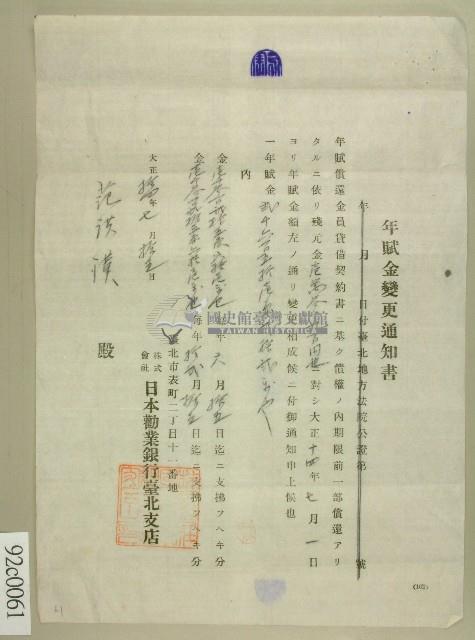 年賦金變更通知書
年 月 日付臺北地方法院公證第 號
年賦償還金員貸借契約書ニ基ク債權ノ內期限前一部償還アリ
タルニ依リ殘元金 ニ對シ大正十四年七月一日
ヨリ年賦金額左ノ通リ變更相成候ニ付御通知申上候也
一年賦金
內
金 每年六月拾五日迄ニ支拂フヘキ分
金 每年拾貳月拾五日迄ニ支拂フヘキ分
大正拾四年七月拾五日
臺北市表町二丁目十一番地
株式會社 日本勸業銀行臺北支店
范洪漢 殿
(102)
國史館臺灣文獻館
TAIWAN HISTORICA
92c0061
61